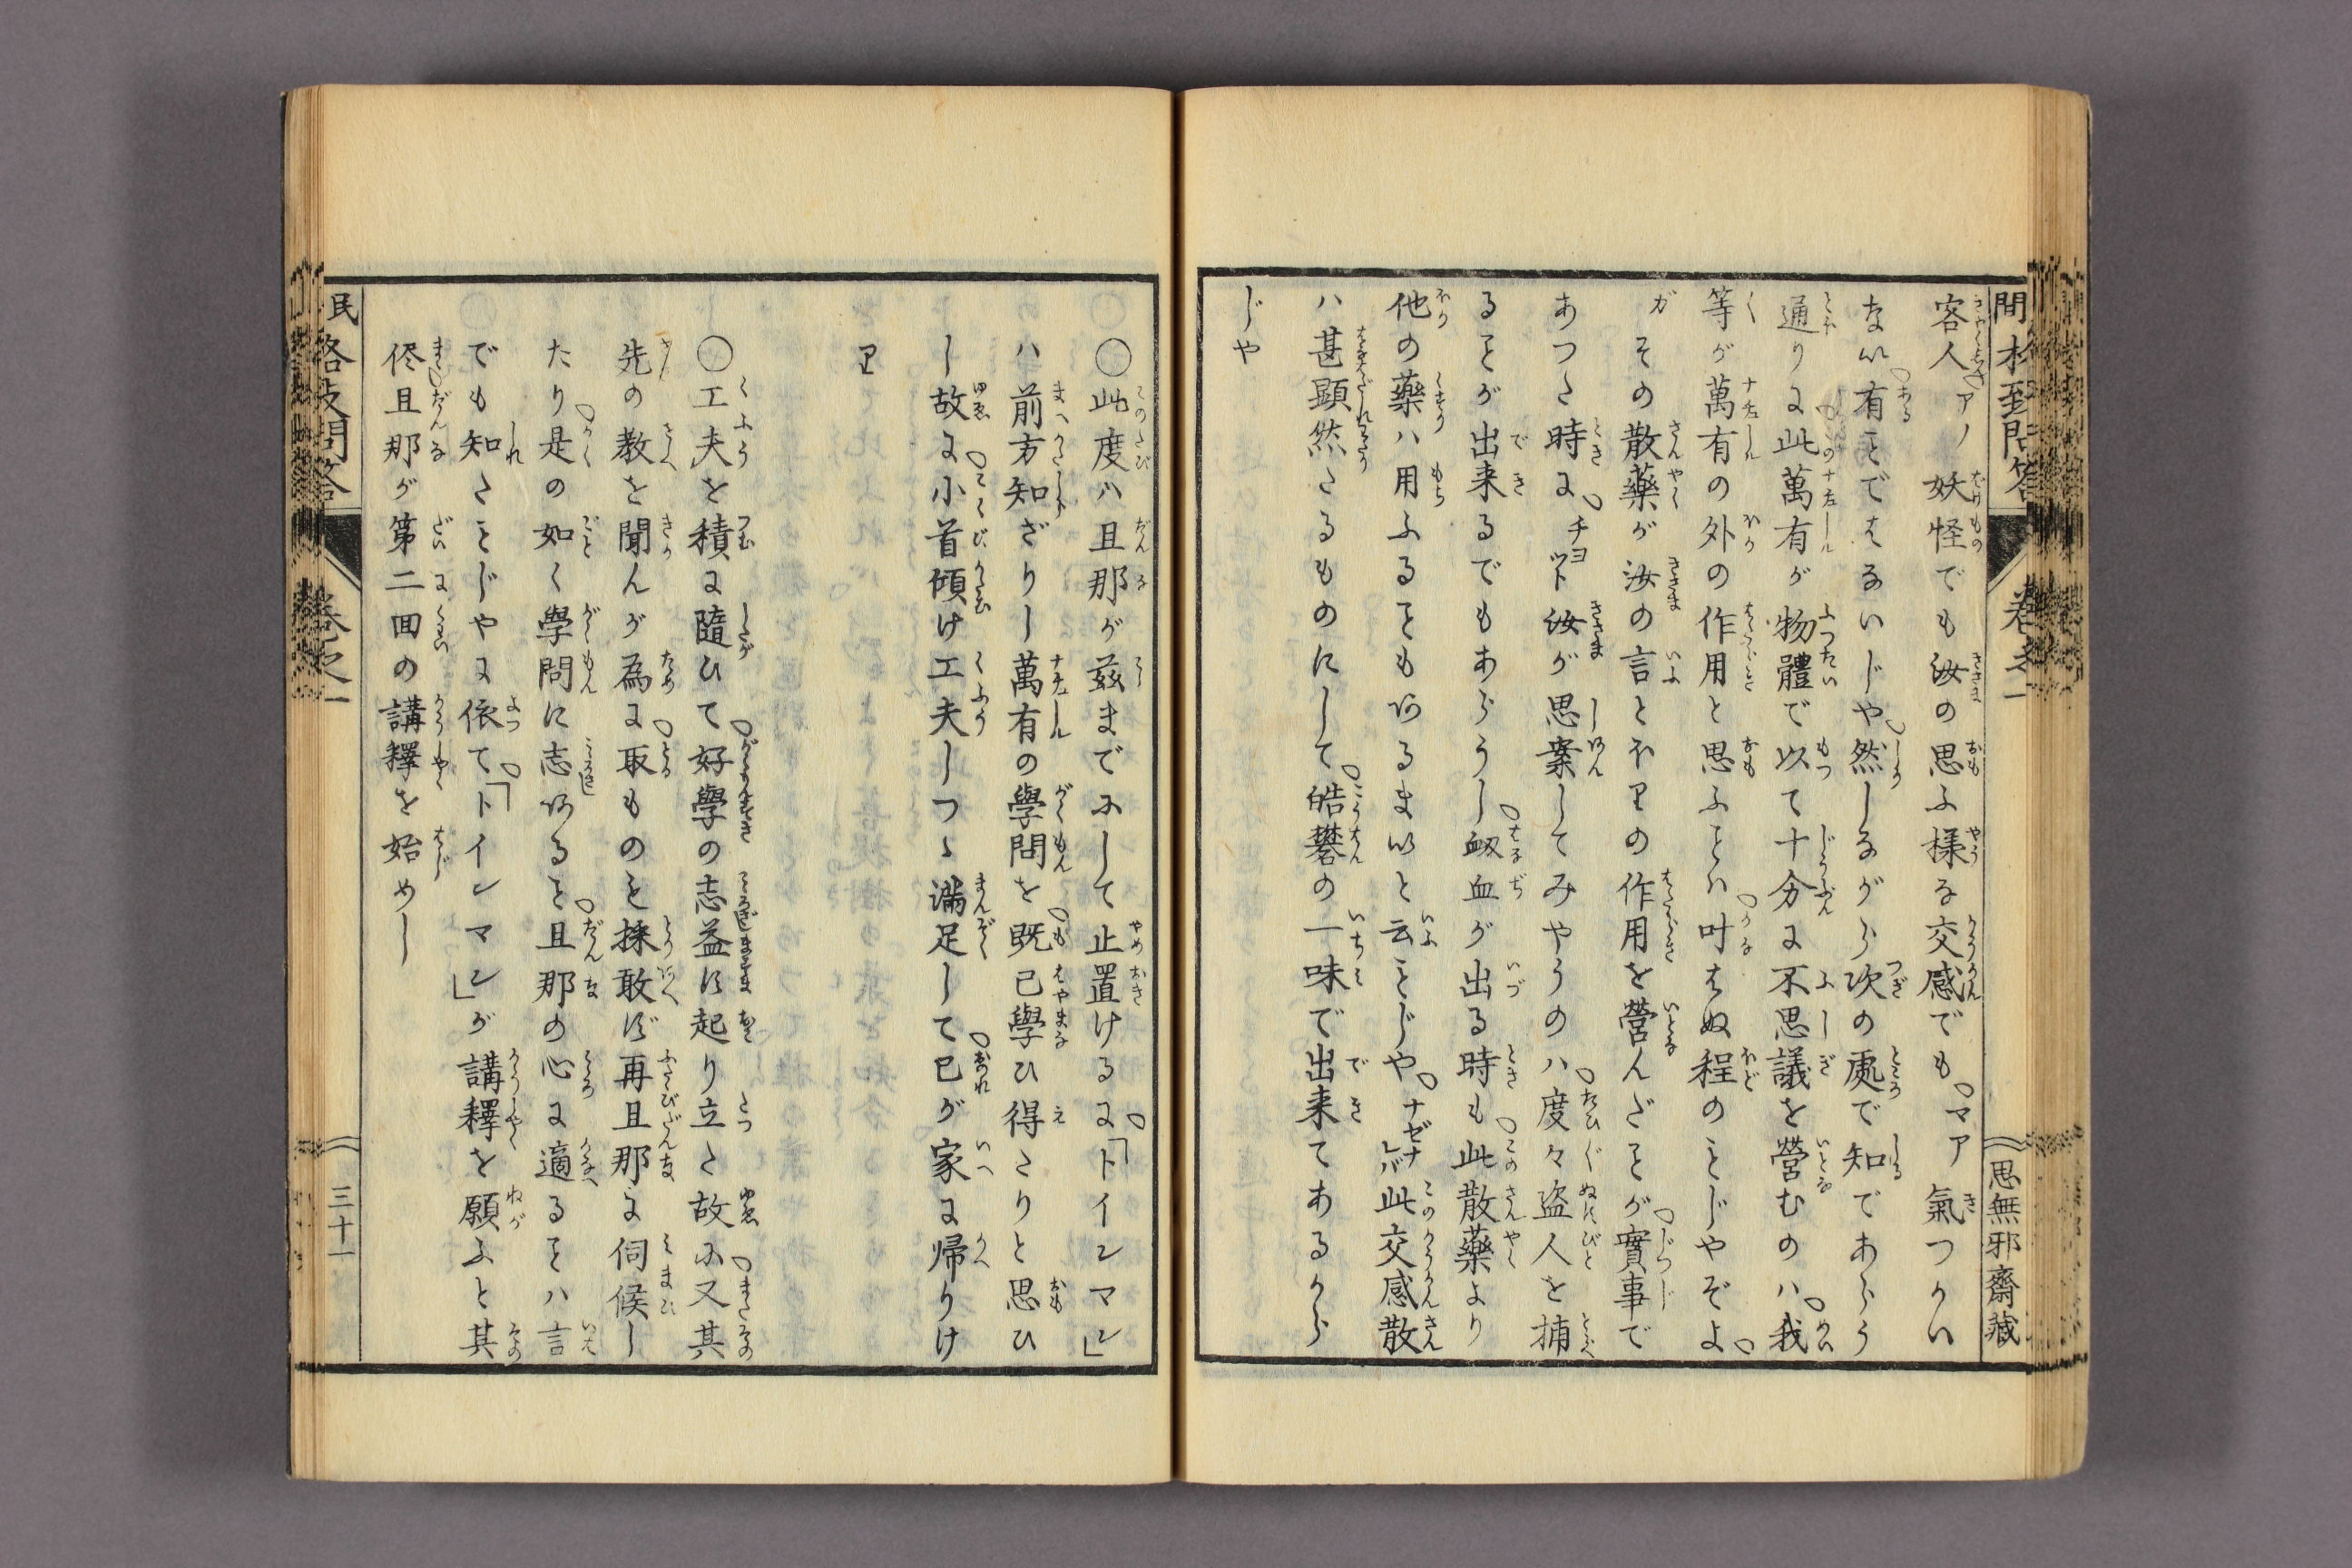 客人アノ妖怪でも汝の思ふ様な交感でもマア氣つかい
ない有ヿではないじや然しながら次の處で知であらう
通りに此萬有が物體で以て十分に不思議を營むのハ我
等が萬有の外の作用と思ふヿハ叶はぬ程のヿじやぞよ
ガその散藥が汝の言とホリの作用を營んだヿが實事で
あつた時にチヨツト汝が思案してみやうのハ度々盗人を捕
るヿが出来るでもあらうし衂血が出る時も此散藥より
他の藥ハ用ふるヿもあるまいと云ヿじやナゼナレバ此交感散
ハ甚顕然たるものにして皓礬の一味で出来てあるから
じや
思無邪齋藏
○此度ハ且那が茲までにして止置けるに「トインマン」
ハ前方知ざりし萬有の學問を既已學ひ得たりと思ひ
し故に小首傾け工夫しつゝ滿足して已が家に帰りけ
り
○工夫を積に隨ひて好學の志益に起り立た故に又其
先の教を聞んが為に取ものヿ採敢ず再且那に伺候し
たり是の如く學問に志あるヿ且那の心に適るヿハ言
でも知たヿじやに依て「トインマン」が講釋を願ふと其
侭且那が第二回の講釋を始めし
民
問答
卷之一
三十一